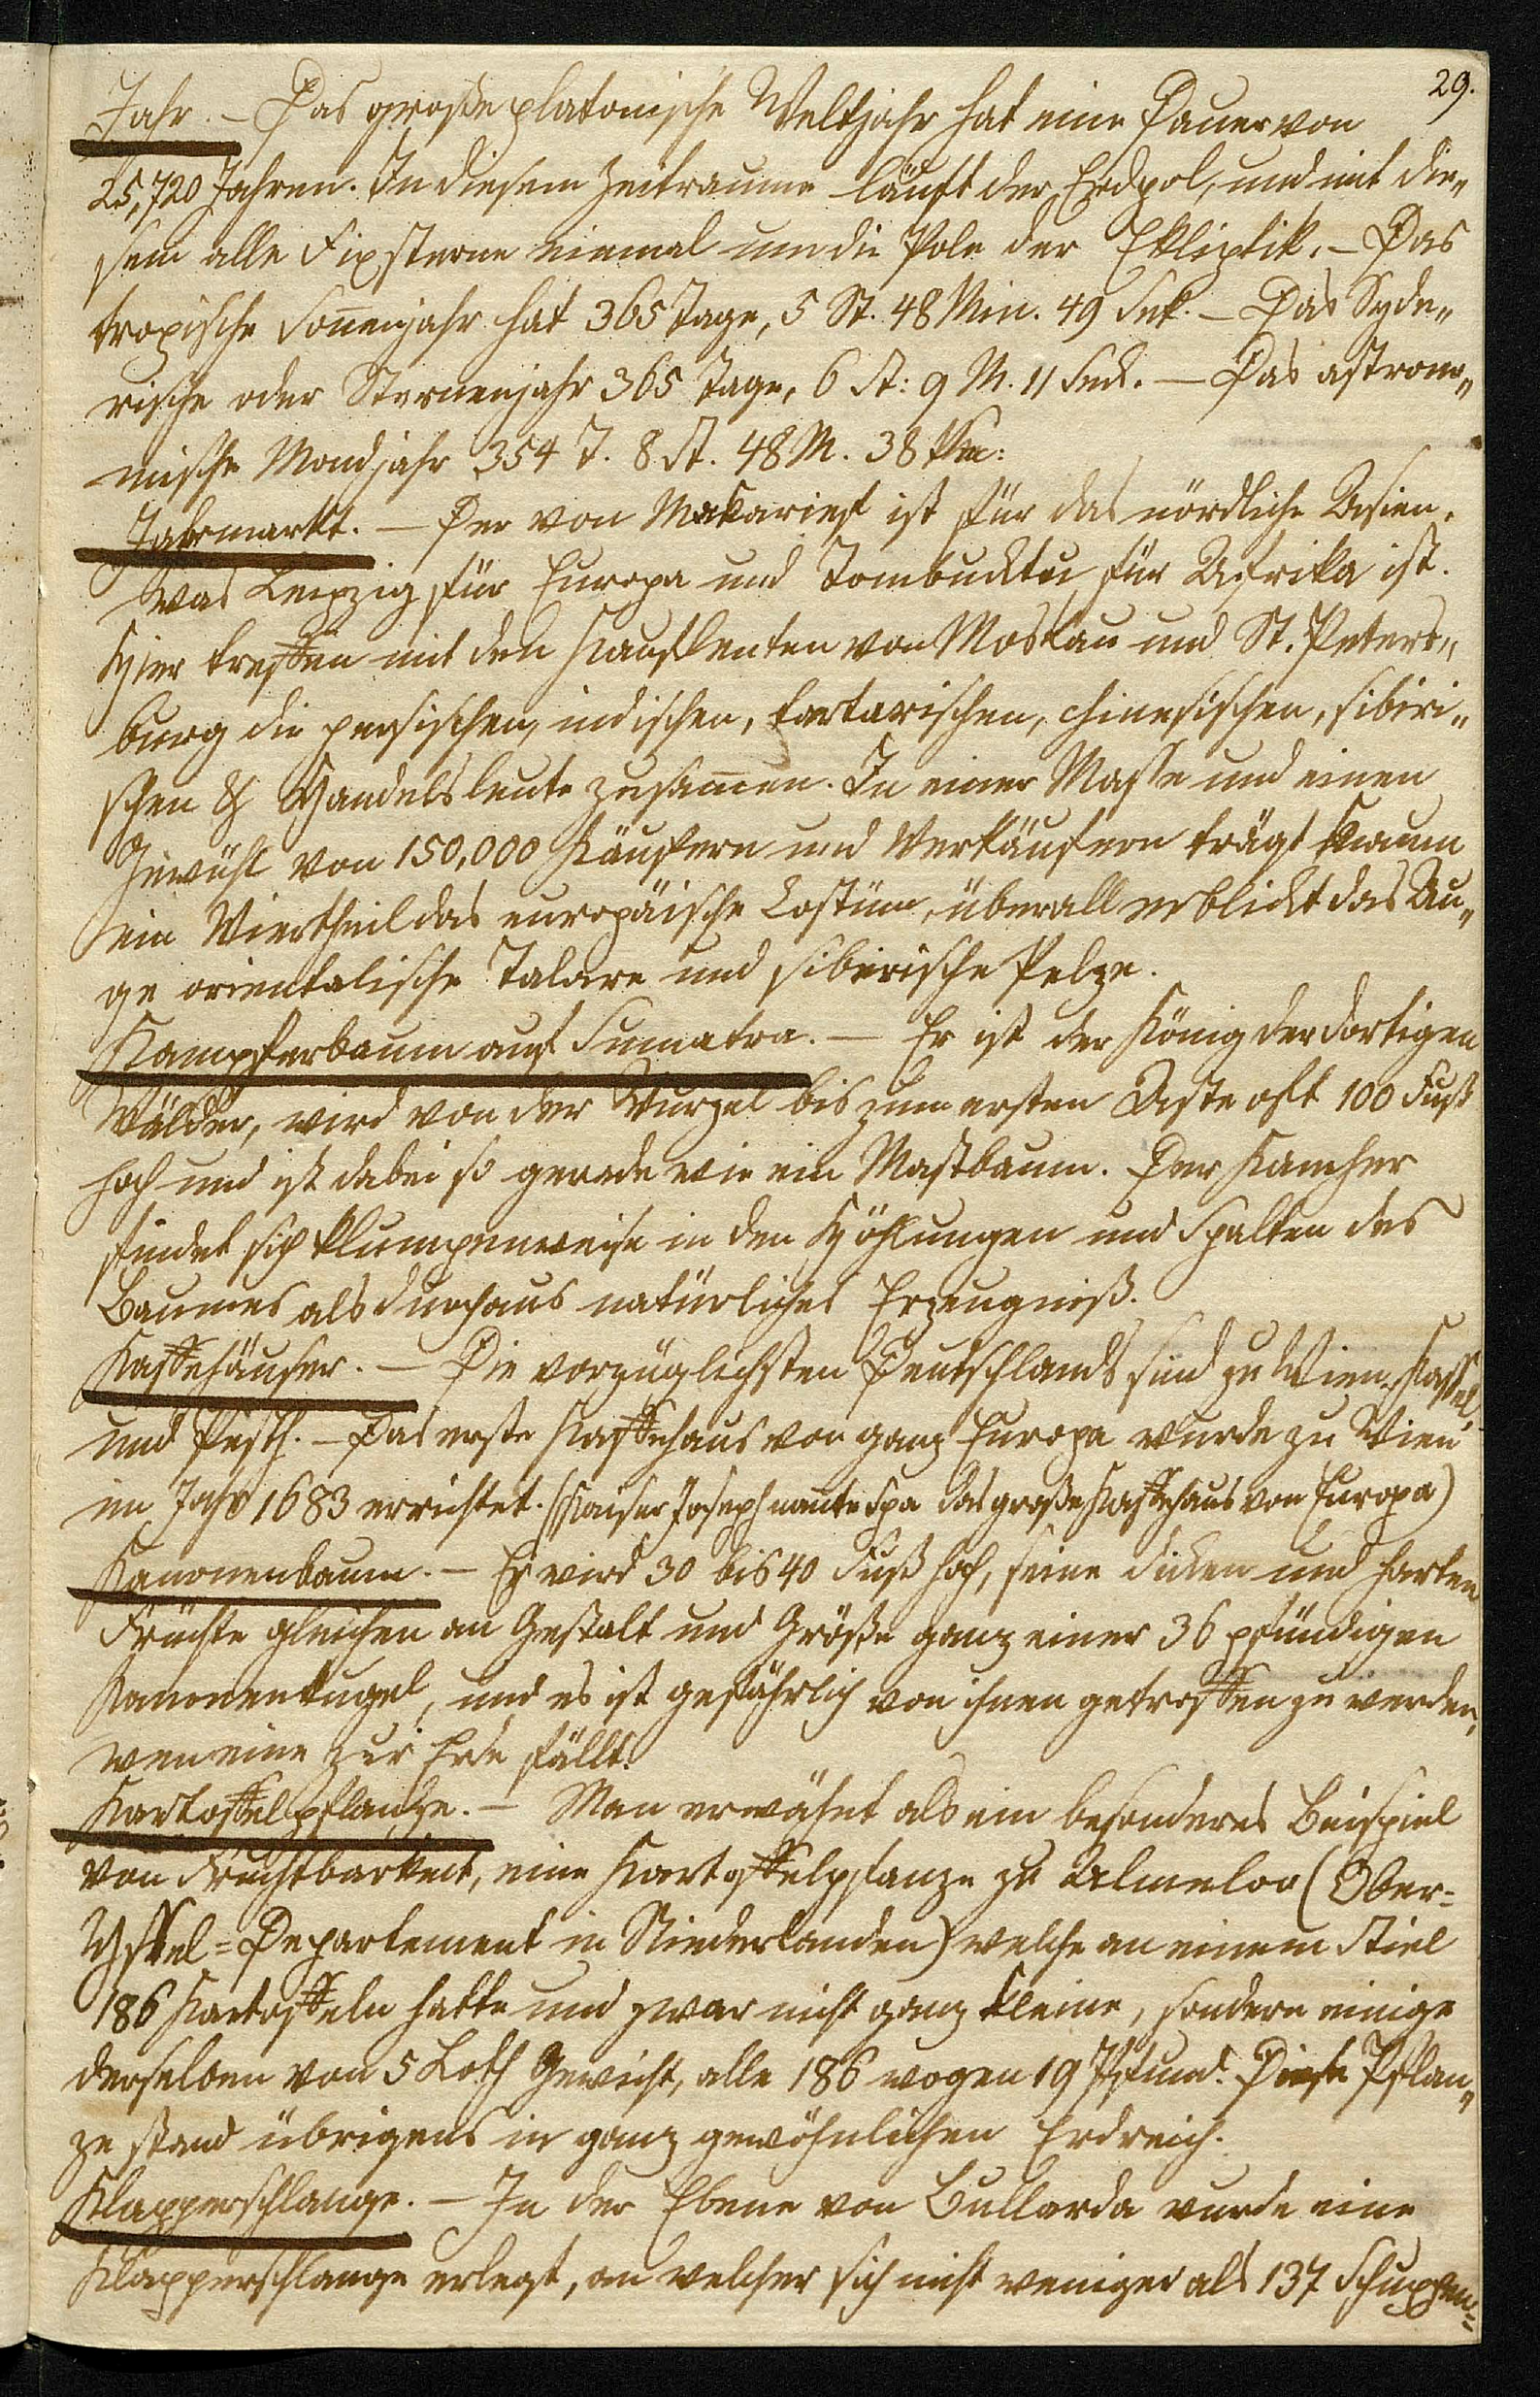 29.
Jahr. – Das große platonische Weltjahr hat eine Dauer von
25,720 Jahren. In diesem Zeitraume läuft der Erdpol, und mit die„
sem alle Fixsterne einmal um die Pole der Ekliptik. – Das
tropische Soñenjahr hat 365 Tage, 5 St. 48 Min. 49 Sek. – Das Syde„
rische oder Sternenjahr 365 Tage, 6 St: 9 M. 11 Seck. – Das astrono„
mische Mondjahr 354 T. 8 St. 48 M. 38
Jahrmarkt. – Der von Makarief ist für das nördliche Asien,
was Leipzig für Europa und Tombucktu für Afrika ist.
Hier treffen mit den Kaufleuten von Moskau und St. Peters„
burg die persischen, indischen, tartarischen, chinesischen, sibiri„
schen & Handelsleute zusam̃en. In einer Masse und einem
Gewühl von 150,000 Käufern und Verkäufern trägt kaum
ein Viertheil das europäische Costüm, überall erblickt das Au„
ge orientalische Talare und sibirische Pelze.
Kampferbaum auf Sumatra. – Er ist der König der dortigen
Wälder, wird von der Wurzel bis zum ersten Aste oft 100 Fuß
hoch und ist dabei so gerade wie ein Mastbaum. Der Kamfher
findet sich klumpenweise in den Höhlungen und Spalten des
Baumes als durchaus natürliches Erzeugniß.
Kaffehäuser. – Die vorzüglichsten Deutschlands sind zu Wien, Kassel,
und Pesth. – Das erste Kaffehaus von ganz Europa wurde zu Wien
im Jahr 1683 errichtet. (Kaiser Joseph nañte Spa das große Kaffehaus von Europa)
Kanonenbaum. – Er wird 30 bis 40 Fuß hoch, seine dicken und harten
Früchte gleichen an Gestalt und Größe ganz einer 36 pfündigen
Kanonenkugel, und es ist gefährlich von ihnen getroffen zu werden,
wen eine zur Erde fällt.
Kartoffelpflanze. – Man erwähnt als ein besonderes Beispiel
von Fruchtbarkeit, eine Kartoffelpflanze zu Almeloo (Ober-
Yssel-Departement in Niederlanden) welche an einem Stiel
186 Kartoffeln hatte und zwar nicht ganz kleine, sondern einige
derselben von 5 Loth Gewicht, alle 186 wogen 19 Pfund. Diese Pflan„
ze stand übrigens in ganz gewöhnlichen Erdreich.
Klapperschlange. – In der Ebene von Bullarda wurde eine
Klapperschlange erlegt, an welcher sich nicht weniger als 137 Schuppen-